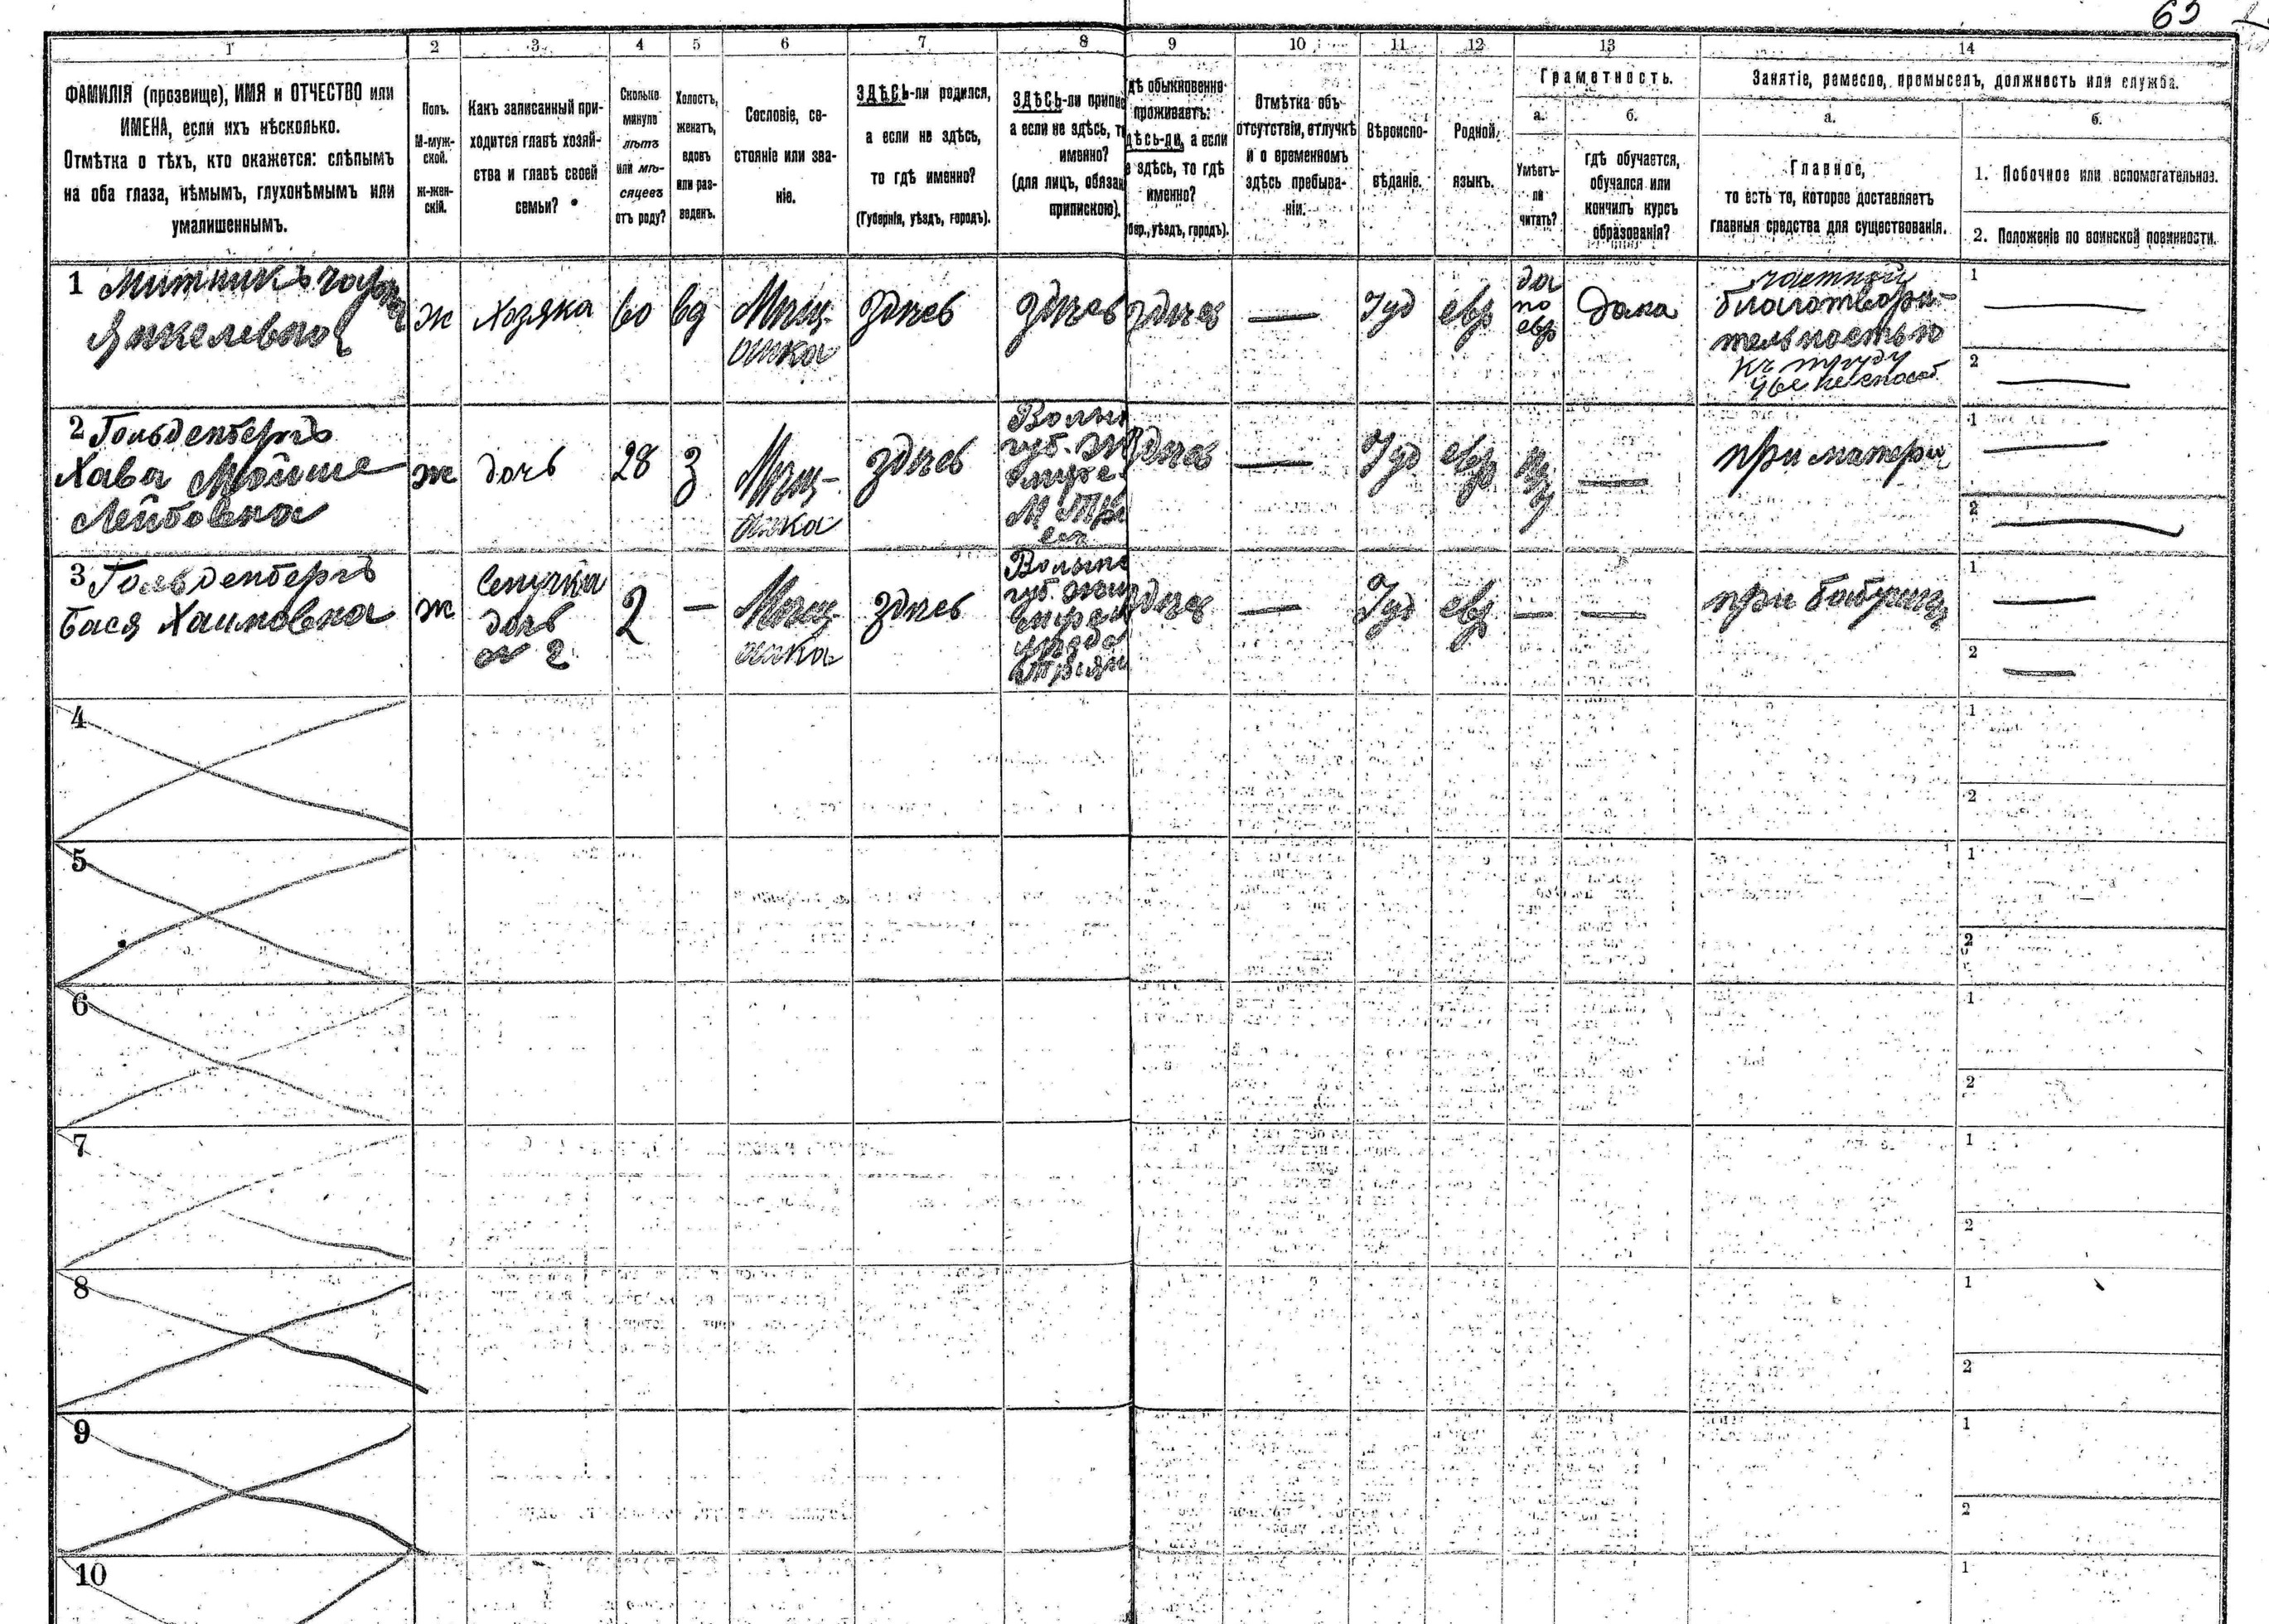 65
1 2 3 4 5 6 7 8 9 10 11 12 13 14
ФАМИЛІЯ (прозвище), ИМЯ и ОТЧЕСТВО или
ИМЕНА, если ихъ нѣсколько.
Отмѣтка о тѣхъ, кто окажется: слѣпымъ
на оба глаза, нѣмымъ, глухонѣмымъ или
умалишеннымъ.
Полъ.
М-муж-
ской.
ж-жен-
скій.
Какъ записанный при-
ходится главѣ хозяй-
ства и главѣ своей
семьи?
Сколько
минуло
лѣтъ
или мѣ-
сяцевъ
отъ роду?
Холостъ,
женатъ,
вдовъ
или раз-
веденъ.
Сословіе, со-
стояніе или зва-
ніе.
ЗДѢСЬ-ли родился,
а если не здѣсь,
то гдѣ именно?
(Губернія, уѣздъ, городъ).
ЗДѢСЬ-ли припис
а если не здѣсь, т
именно?
(для лицъ, обязан
припискою).
дѣ обыкновенно
проживаетъ:
дѣсь-ли, а если
е здѣсь, то гдѣ
именно?
бер., уѣздъ, городъ).
Отмѣтка объ
отсутствіи, отлучкѣ
и о временномъ
здѣсь пребыва-
ніи.
Вѣроиспо-
вѣданіе.
Родной
языкъ.
Грамотность.
а.
Умѣетъ-
ли
читать?
б.
гдѣ обучается,
обучался или
кончилъ курсъ
образованія?
Занятіе, ремесло, промыселъ, должность или служба.
а.
Главное,
то есть то, которое доставляетъ
главныя средства для существованія.
б.
1. Побочное или вспомогательное.
2. Положеніе по воинской повинности.
1 Митникъ
Янкелевна
ж
Хозяка
60
вд
Мѣщ-
анка
здѣсь
здѣсь
здѣсь
—
Іуд
евр
да
по
евр
дома
частной
благотвори-
тельностью
къ труду
уже не способ
1 —
2 —
2 Гольденбергъ
Хава Мойше
Лейбовна
ж
дочь
28
З
Мѣщ-
анка
здѣсь
Волын
губ. Ж
здѣсь
—
Іуд
евр
—
при матери
1 —
2 —
3 Гольденбергъ
Бася Хаимовна
ж
внучка
дочь
№ 2
2
—
Мѣщ-
анка
здѣсь
Волынс
губ. Жит
омірск
уѣзда
здѣсь
—
Іуд
евр
—
—
при бабушкѣ
1 —
2 —
4
1
2
5
1
2
6
1
2
7
1
2
8
1
2
9
1
2
10
1